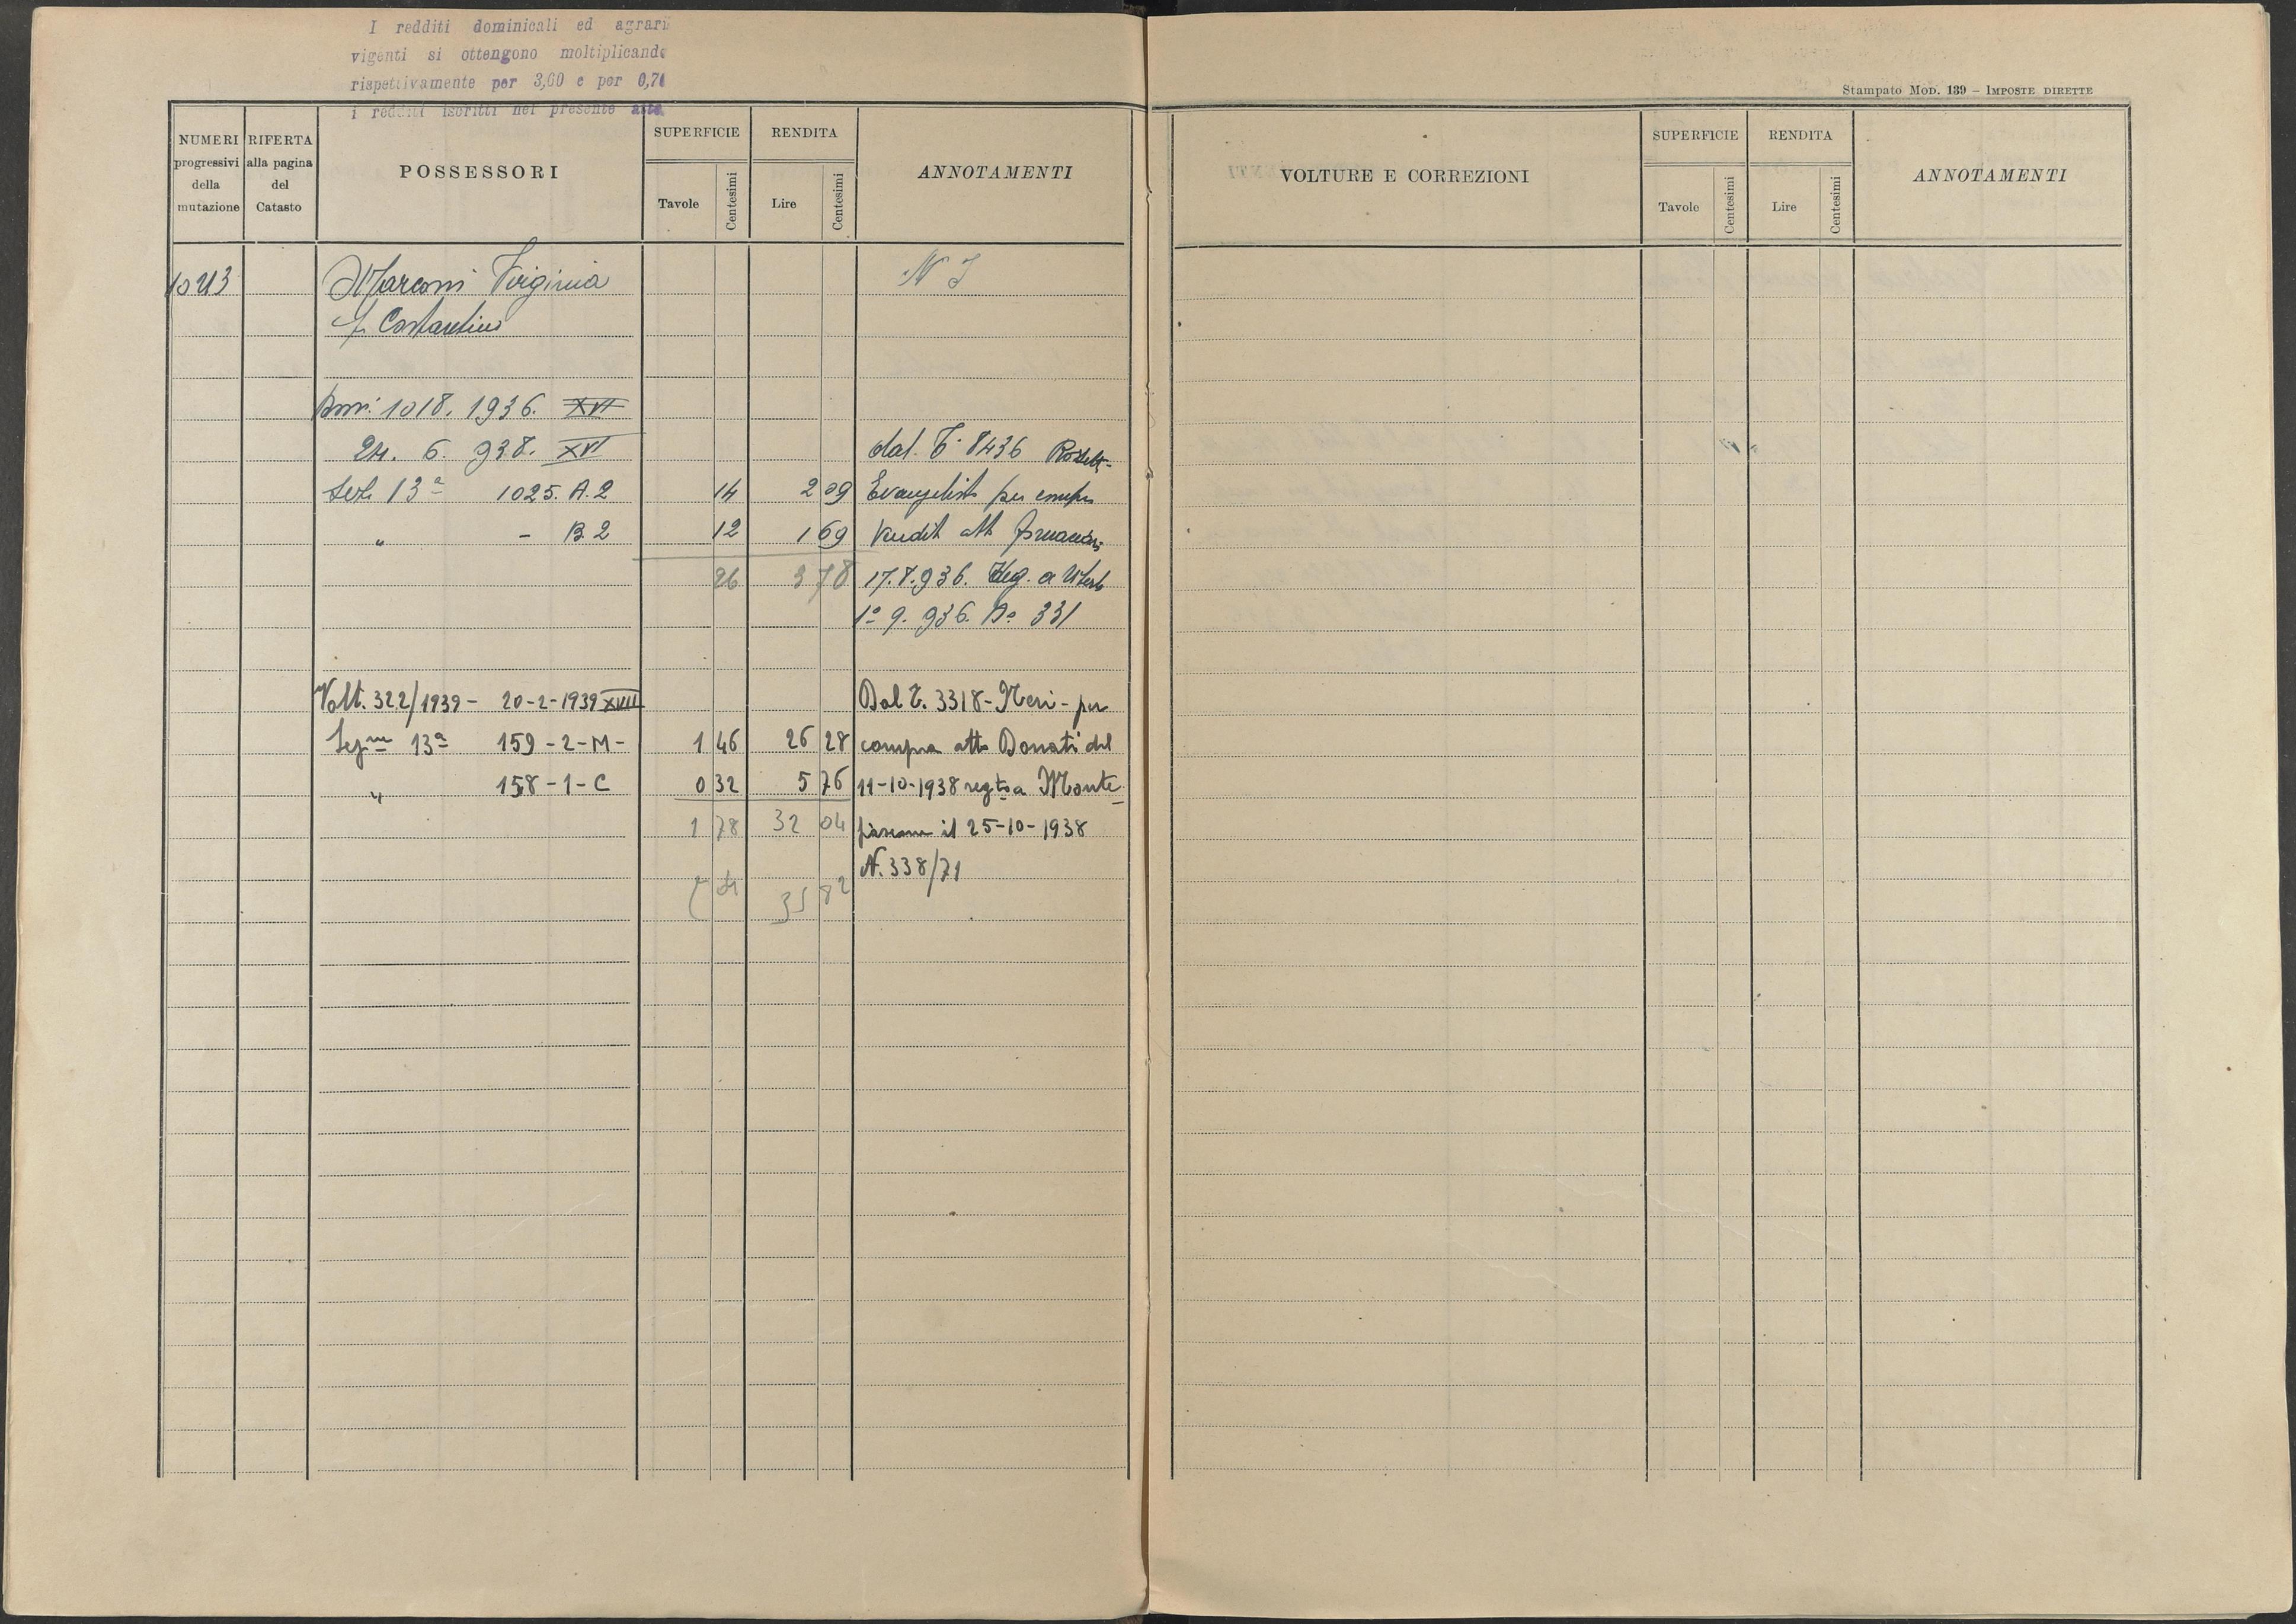 I redditi dominicali ed agrari
vigenti si ottengono moltiplicando
rispettivamente per 3,60 e per 0,70
i redditi iscritti nel presente atto
Stampato Mod. 139 – IMPOSTE DIRETTE
NUMERI progressivi della mutazione
RIFERTA alla pagina del Catasto
POSSESSORI
SUPERFICIE
Tavole Centesimi
RENDITA
Lire Centesimi
ANNOTAMENTI
VOLTURE E CORREZIONI
SUPERFICIE
Tavole Centesimi
RENDITA
Lire Centesimi
ANNOTAMENTI
Marconi Virginia
f. Costantino
1018. 1936. XVI
24. 6. 938. XVI dal. T. 8436
13ª 1025. A. 2 14 2 09 Evangelista per compra
" - B 2 12 1 69 Vendit att
26 3 78 17.8.936. Reg. a Viterbo
1º 9. 936. Nº 331
Volt. 322/1939 - 20-2-1939 XVII Dal T. 3318 - Neri - per
Segne 13ª 159-2-M- 1 46 26 28 compra atto Donati del
" 158-1-C 0 32 5 76 11-10-1938 regto a Monte
1 78 32 04 fiascone il 25-10-1938
N. 338/71
35 82